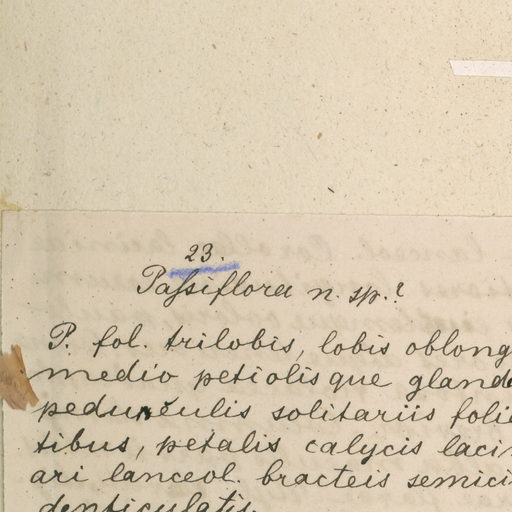 23.
Passiflora n. sp.?
P. fol. trilobis, lobis oblong
medio petiolisque gland
pedunculis solitariis folio
tibus, petalis calycis laci
ari lanceol. bracteis semici
denticulatis.